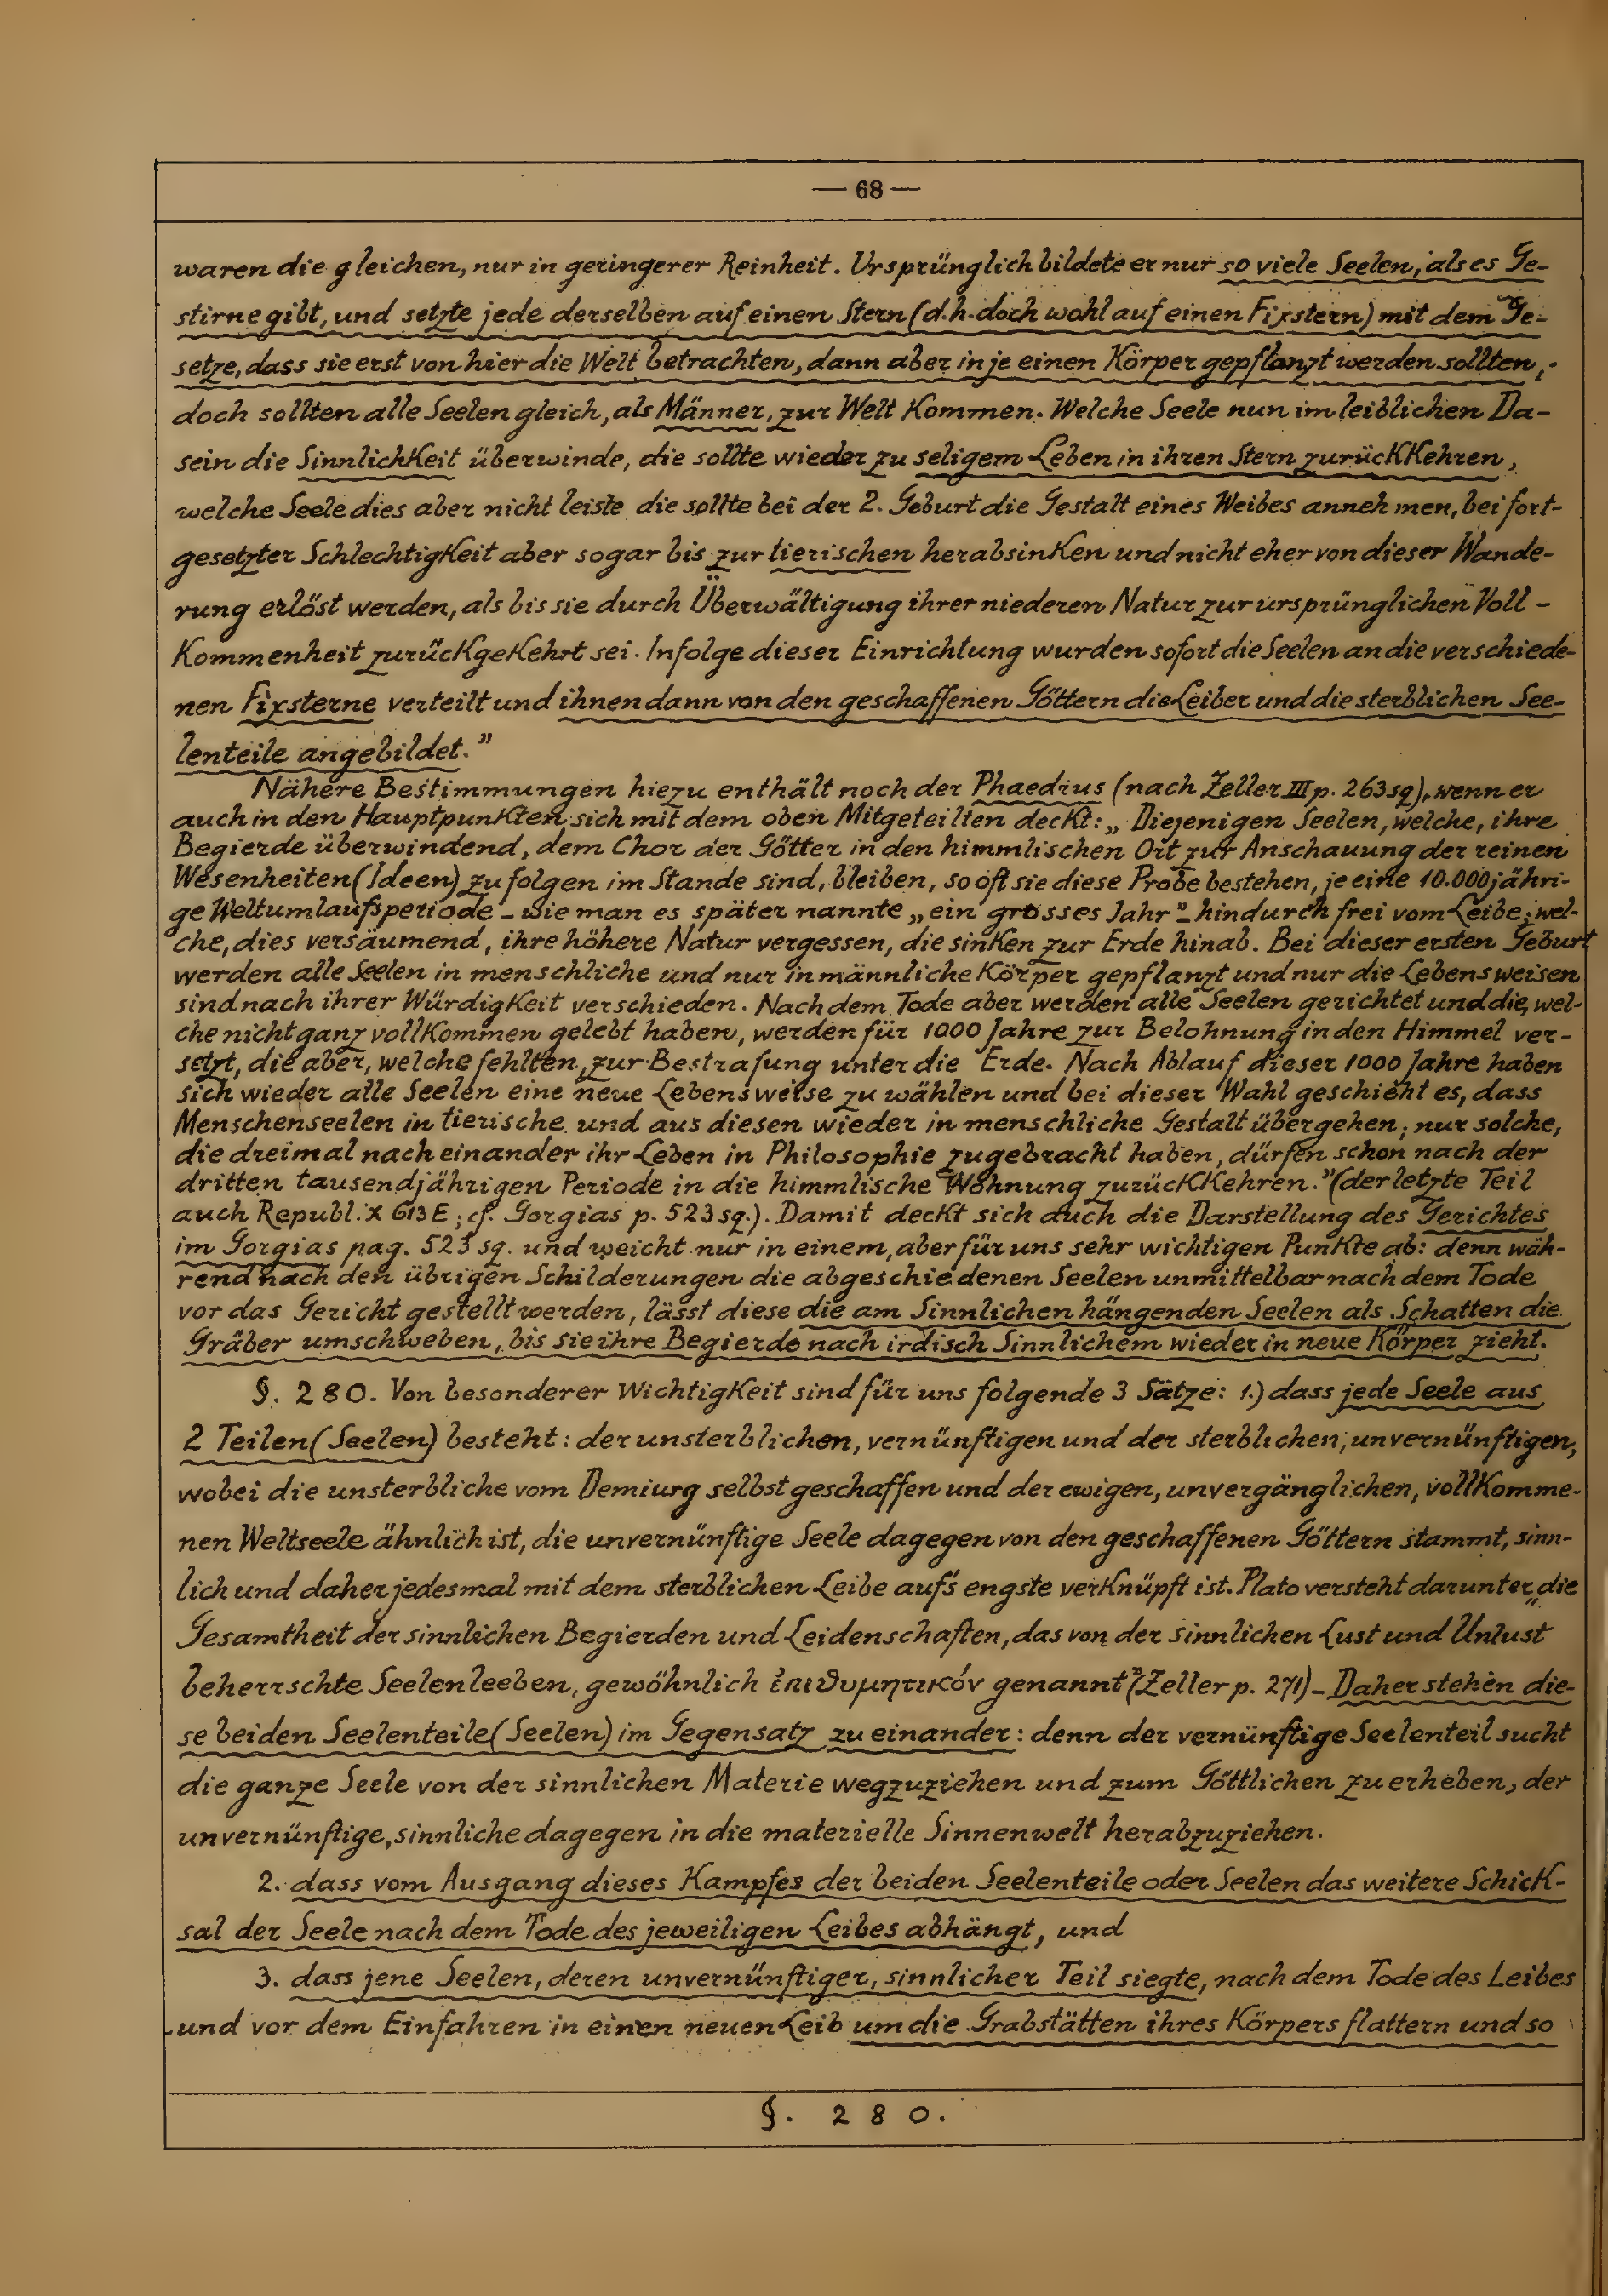 — 68 —
waren die gleichen, nur in geringerer Reinheit. Ursprünglich bildete er nur so viele Seelen, als es Ge-
stirne gibt, und setzte jede derselben auf einen Stern (d.h. doch wohl auf einen Fixstern) mit dem Ge-
setze, dass sie erst von hier die Welt betrachten, dann aber in je einen Körper gepflanzt werden sollten,
doch sollten alle Seelen gleich, als Männer, zur Welt kommen. Welche Seele nun im leiblichen Da-
sein die Sinnlichkeit überwinde, die sollte wieder zu seligem Leben in ihren Stern zurückkehren,
welche Seele dies aber nicht leiste die sollte bei der 2. Geburt die Gestalt eines Weibes annehmen, bei fort-
gesetzter Schlechtigkeit aber sogar bis zur tierischen herabsinken und nicht eher von dieser Wande-
rung erlöst werden, als bis sie durch Überwältigung ihrer niederen Natur zur ursprünglichen Voll-
kommenheit zurückgekehrt sei. Infolge dieser Einrichtung wurden sofort die Seelen an die verschiede-
nen Fixsterne verteilt und ihnen dann von den geschaffenen Göttern die Leiber und die sterblichen See-
lenteile angebildet."
Nähere Bestimmungen hiezu enthält noch der Phaedrus (nach Zeller III p. 263 sq), wenn er
auch in den Hauptpunkten sich mit dem oben Mitgeteilten deckt: „Diejenigen Seelen, welche, ihre
Begierde überwindend, dem Chor der Götter in den himmlischen Ort zur Anschauung der reinen
Wesenheiten (Ideen) zu folgen im Stande sind, bleiben, so oft sie diese Probe bestehen, je eine 10.000 jähri-
ge Weltumlaufsperiode – wie man es später nannte „ein grosses Jahr" – hindurch frei vom Leibe; wel-
che, dies versäumend, ihre höhere Natur vergessen, die sinken zur Erde hinab. Bei dieser ersten Geburt
werden alle Seelen in menschliche und nur in männliche Körper gepflanzt und nur die Lebensweisen
sind nach ihrer Würdigkeit verschieden. Nach dem Tode aber werden alle Seelen gerichtet und die, wel-
che nicht ganz vollkommen gelebt haben, werden für 1000 Jahre zur Belohnung in den Himmel ver-
setzt, die aber, welche fehlten, zur Bestrafung unter die Erde. Nach Ablauf dieser 1000 Jahre haben
sich wieder alle Seelen eine neue Lebensweise zu wählen und bei dieser Wahl geschieht es, dass
Menschenseelen in tierische und aus diesen wieder in menschliche Gestalt übergehen; nur solche,
die dreimal nach einander ihr Leben in Philosophie zugebracht haben, dürfen schon nach der
dritten tausendjährigen Periode in die himmlische Wohnung zurückkehren." (der letzte Teil
auch Republ. X 613 E; cf. Gorgias p. 523 sq.). Damit deckt sich auch die Darstellung des Gerichtes
im Gorgias pag. 523 sq. und weicht nur in einem, aber für uns sehr wichtigen Punkte ab: denn wäh-
rend nach den übrigen Schilderungen die abgeschiedenen Seelen unmittelbar nach dem Tode
vor das Gericht gestellt werden, lässt diese die am Sinnlichen hängenden Seelen als Schatten die
Gräber umschweben, bis sie ihre Begierde nach irdisch Sinnlichem wieder in neue Körper zieht.
§. 280. Von besonderer Wichtigkeit sind für uns folgende 3 Sätze: 1.) dass jede Seele aus
2 Teilen (Seelen) besteht: der unsterblichen, vernünftigen und der sterblichen, unvernünftigen,
wobei die unsterbliche vom Demiurg selbst geschaffen und der ewigen, unvergänglichen, vollkomme-
nen Weltseele ähnlich ist, die unvernünftige Seele dagegen von den geschaffenen Göttern stammt, sinn-
lich und daher jedesmal mit dem sterblichen Leibe auf's engste verknüpft ist. Plato versteht darunter „die
Gesamtheit der sinnlichen Begierden und Leidenschaften, das von der sinnlichen Lust und Unlust
beherrschte Seelenleeben, gewöhnlich ἐπιθυμητικόν genannt" (Zeller p. 271) – Daher stehen die-
se beiden Seelenteile (Seelen) im Gegensatz zu einander: denn der vernünftige Seelenteil sucht
die ganze Seele von der sinnlichen Materie wegzuziehen und zum Göttlichen zu erheben, der
unvernünftige, sinnliche dagegen in die materielle Sinnenwelt herabzuziehen.
2. dass vom Ausgang dieses Kampfes der beiden Seelenteile oder Seelen das weitere Schick-
sal der Seele nach dem Tode des jeweiligen Leibes abhängt, und
3. dass jene Seelen, deren unvernünftiger, sinnlicher Teil siegte, nach dem Tode des Leibes
und vor dem Einfahren in einen neuen Leib um die Grabstätten ihres Körpers flattern und so
§. 280.